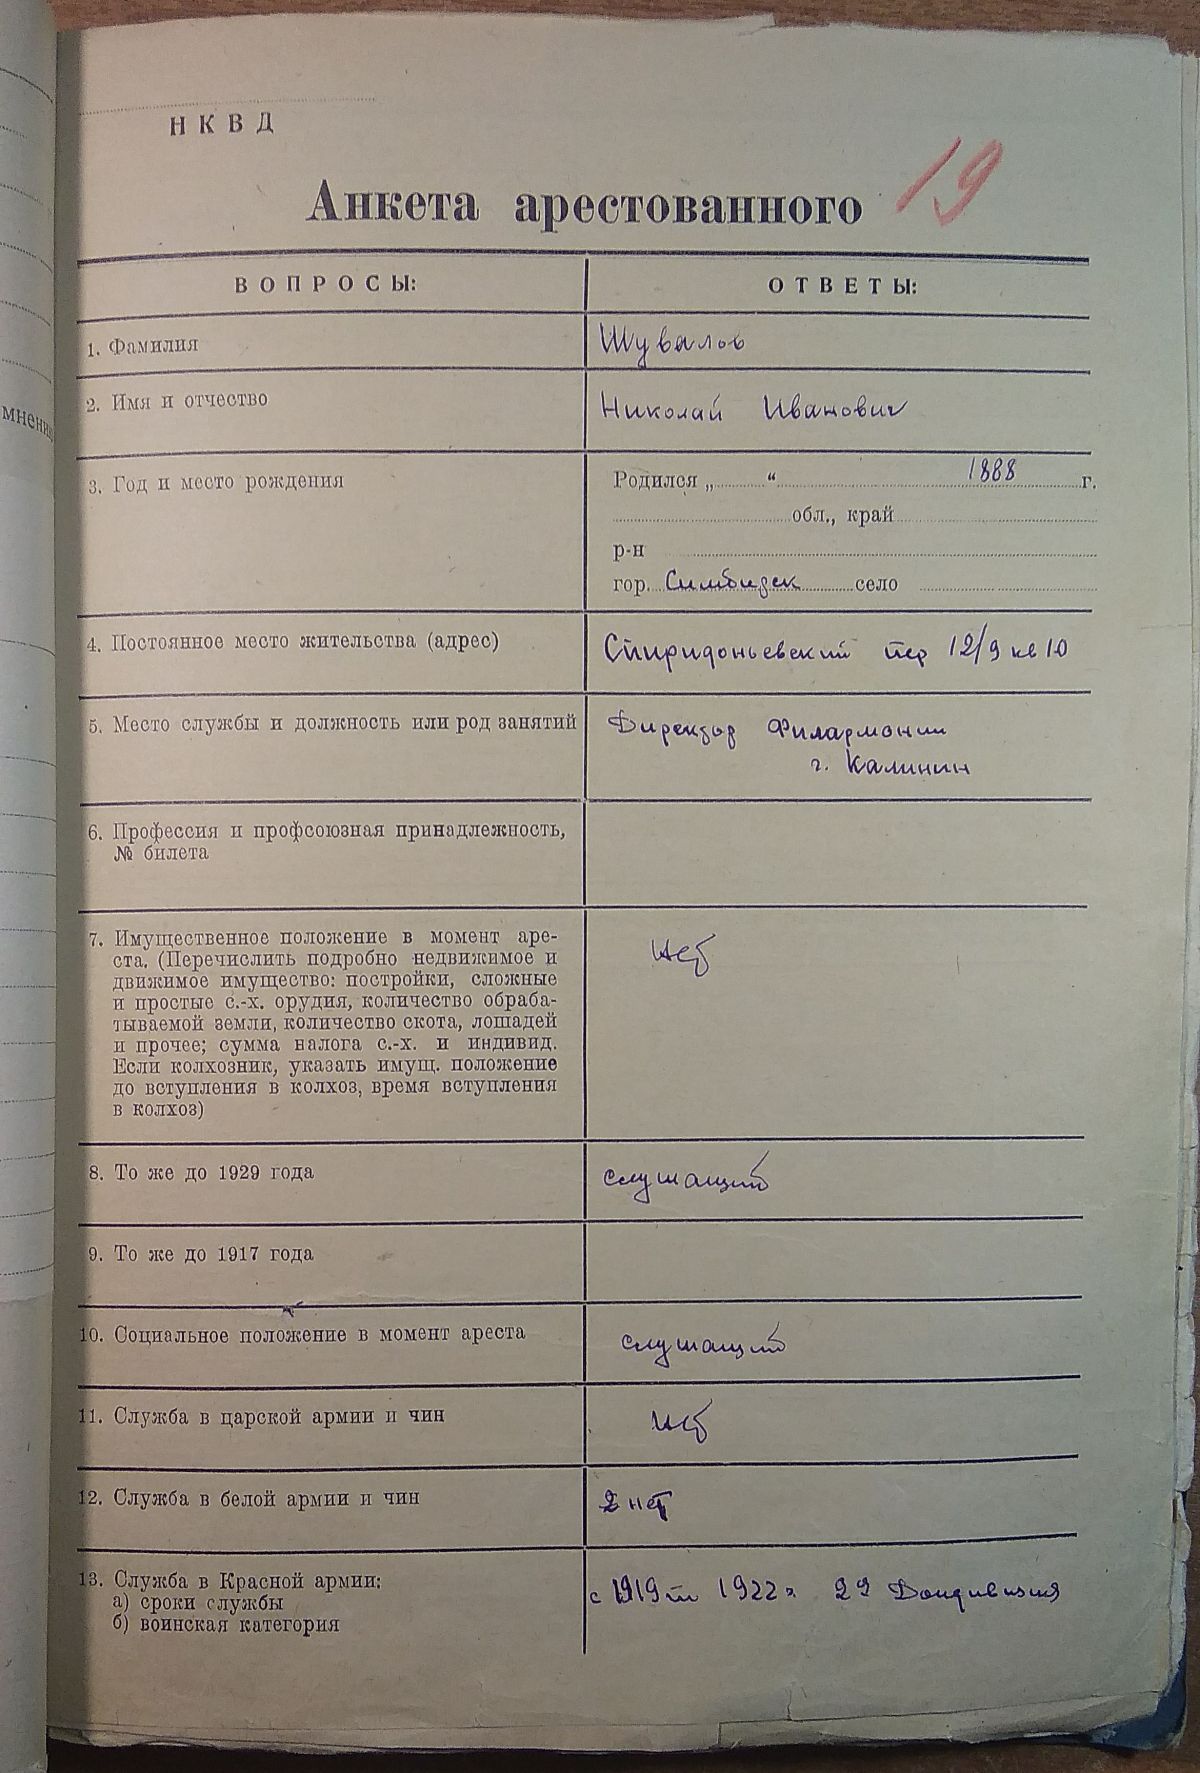 НКВД
19
Анкета арестованного
ВОПРОСЫ:
ОТВЕТЫ:
1. Фамилия
Шувалов
2. Имя и отчество
Николай Иванович
3. Год и место рождения
Родился „ “ 1888 г.
обл., край
р-н
гор. Симбирск село
4. Постоянное место жительства (адрес)
Спиридоньевский пер 12/9 кв 10
5. Место службы и должность или род занятий
Директор Филармонии
г. Калинин
6. Профессия и профсоюзная принадлежность,
№ билета
7. Имущественное положение в момент аре-
ста. (Перечислить подробно недвижимое и
движимое имущество: постройки, сложные
и простые с.-х. орудия, количество обраба-
тываемой земли, количество скота, лошадей
и прочее; сумма налога с.-х. и индивид.
Если колхозник, указать имущ. положение
до вступления в колхоз, время вступления
в колхоз)
Нет
8. То же до 1929 года
служащий
9. То же до 1917 года
10. Социальное положение в момент ареста
служащий
11. Служба в царской армии и чин
Нет
12. Служба в белой армии и чин
нет
13. Служба в Красной армии:
а) сроки службы
б) воинская категория
с 1919 1922 г 29
мнении